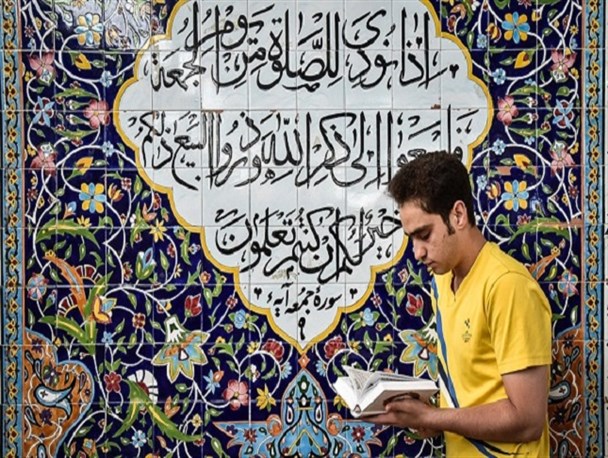 اِذا نُودِيَ لِلصَّلوٰةِ مِن يَومِ الجُمعَةِ
فَاسعَوا اِلىٰ ذِكرِ اللهِ وَذَرُوا البَيعَ ذٰلِكُم
خَيرٌ لَكُم اِن كُنتُم تَعلَمُونَ
سورهٔ جمعه آیهٔ
۹